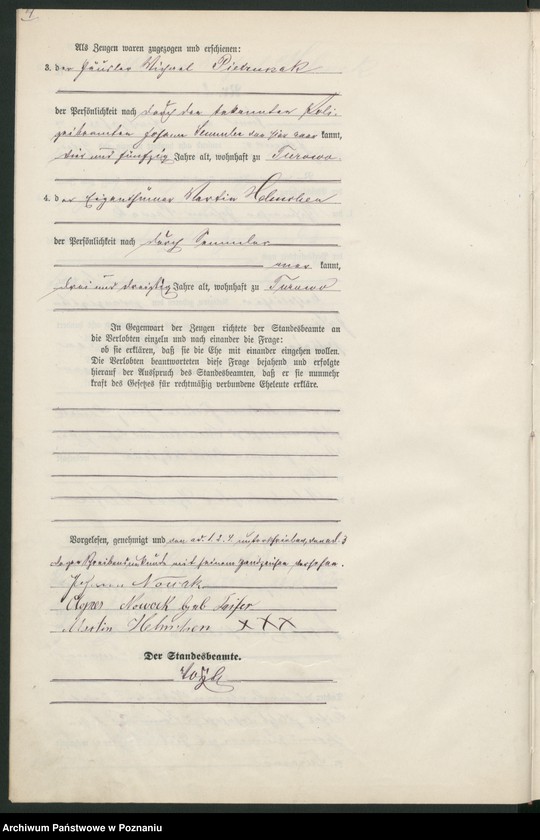 4
Als Zeugen waren zugezogen und erschienen:
3. der Häusler Michael Pietruszak
der Persönlichkeit nach durch den bekannten Poli-
zeibeamten Johann Semmler von hier aner kannt,
vier und fünfzig Jahre alt, wohnhaft zu Turowo
4. der Eigenthümer Martin Helmchen
der Persönlichkeit nach durch Semmler
aner kannt,
drei und dreißig Jahre alt, wohnhaft zu Turowo
In Gegenwart der Zeugen richtete der Standesbeamte an
die Verlobten einzeln und nach einander die Frage:
ob sie erklären, daß sie die Ehe mit einander eingehen wollen.
Die Verlobten beantworteten diese Frage bejahend und erfolgte
hierauf der Ausspruch des Standesbeamten, daß er sie nunmehr
kraft des Gesetzes für rechtmäßig verbundene Eheleute erkläre.
Vorgelesen, genehmigt und von ad. 1. 2. 4 unterschrieben, von ad. 3
wegen Schreibensunkunde mit seinem Handzeichen versehen.
Johann Nowak
Agnes Nowak geb
Martin Helmchen XXX
Der Standesbeamte.
Archiwum Państwowe w Poznaniu